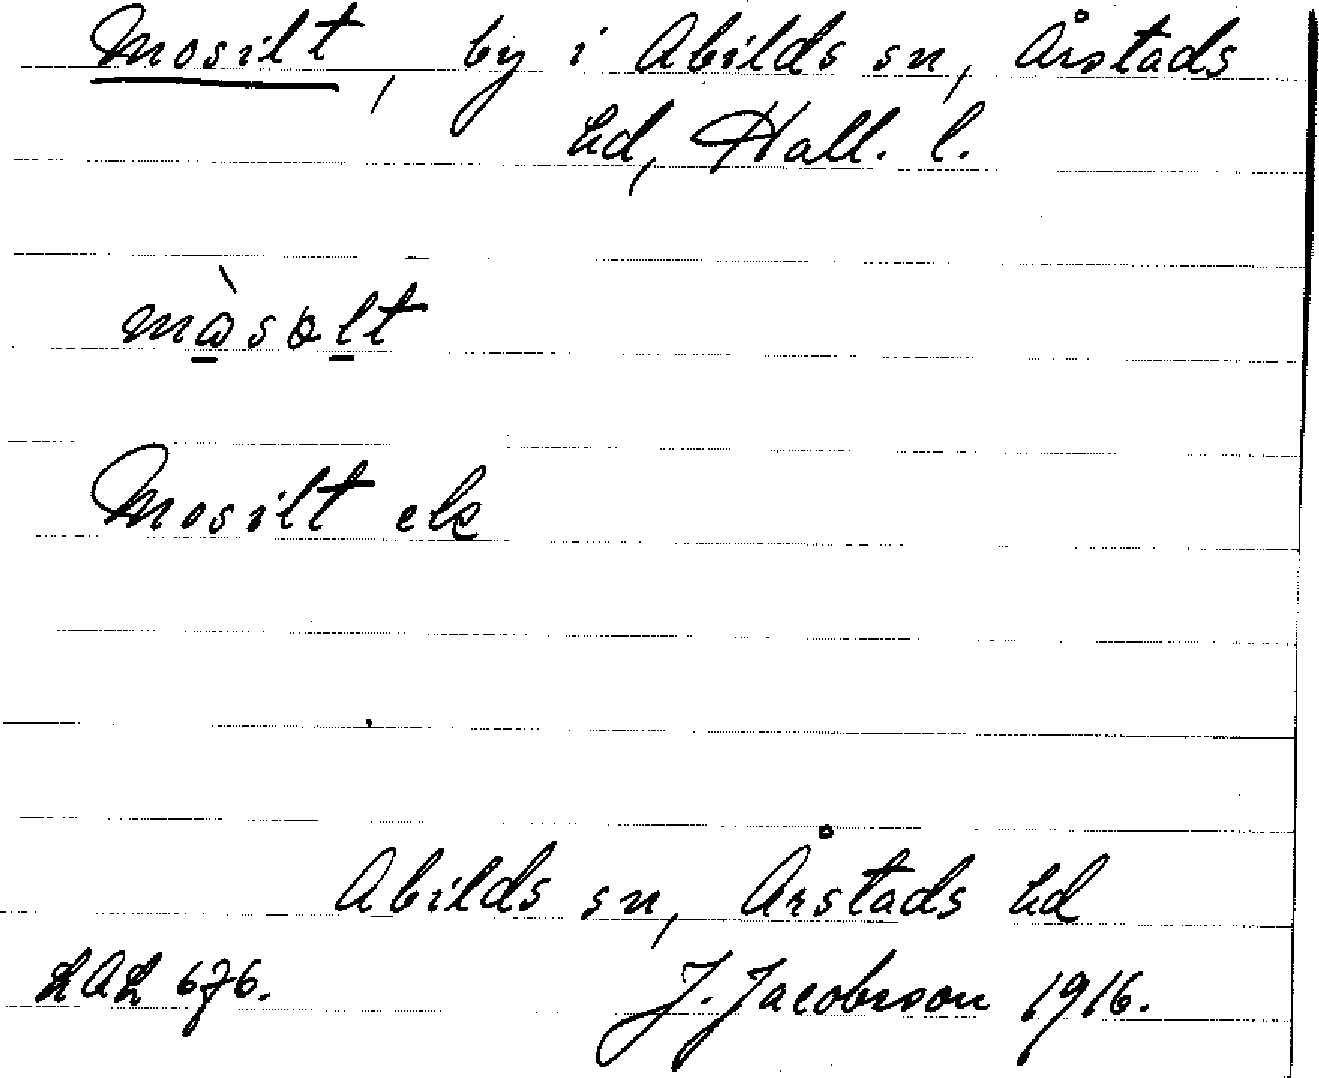 Mosilt, by i Abilds sn, Årstads
hd, Hall. l.
Mosilt ek
Abilds sn, Årstads hd
LAL 676.
J. Jacobsson 1916.